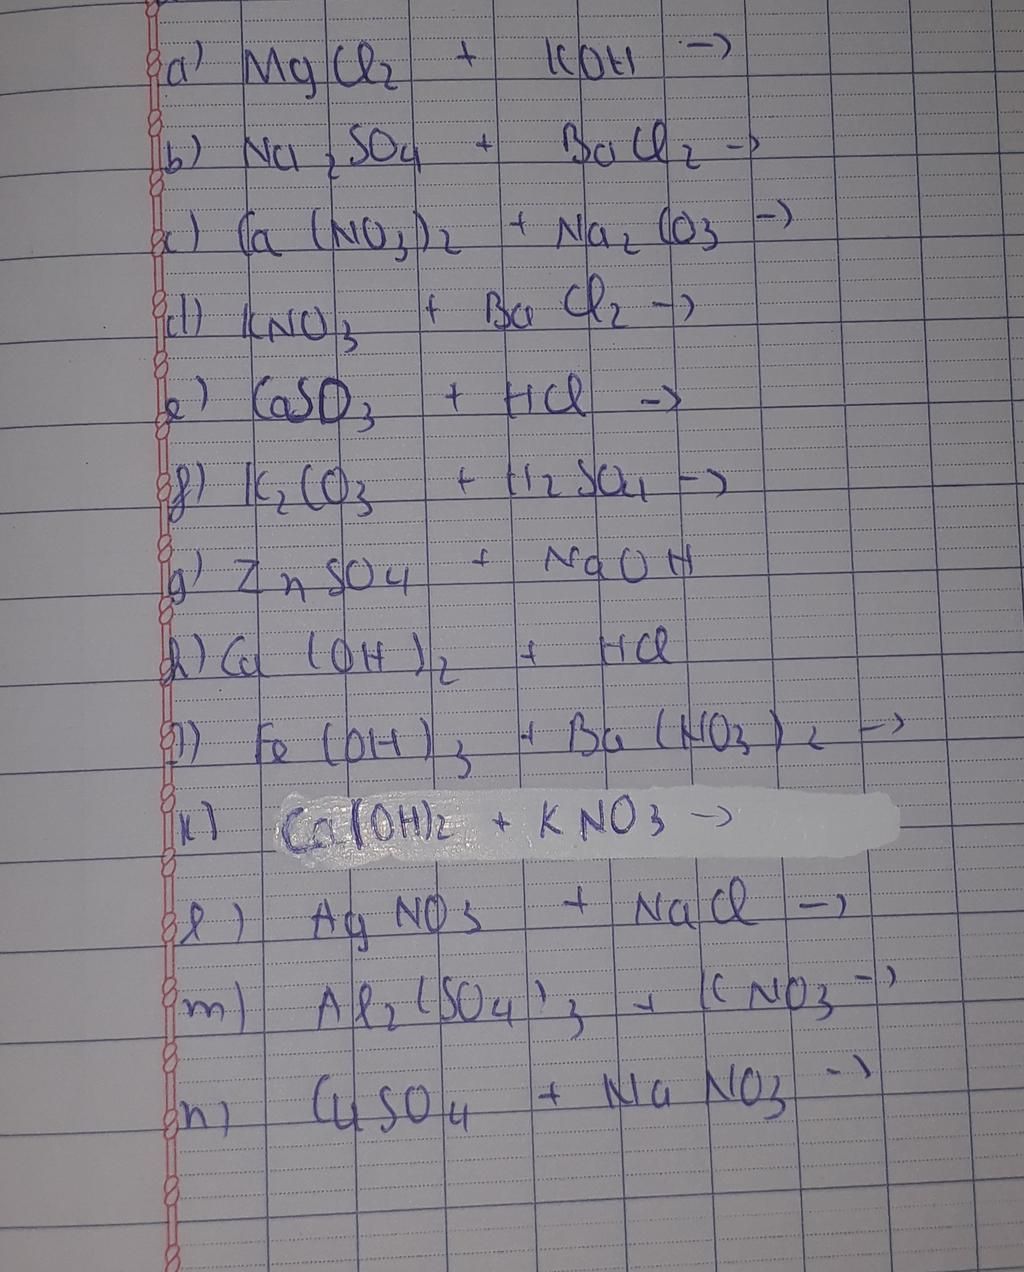 a) MgCl2 + KOH ->
b) Na2SO4 + BaCl2 ->
c) Ca(NO3)2 + Na2CO3 ->
d) KNO3 + BaCl2 ->
e) CaSO3 + HCl ->
f) K2CO3 + H2SO4 ->
g) ZnSO4 + NaOH
h) Ca(OH)2 + HCl
i) Fe(OH)3 + Ba(NO3)2 ->
k) Ca(OH)2 + KNO3 ->
l) AgNO3 + NaCl ->
m) Al2(SO4)3 + KNO3 ->
n) CuSO4 + NaNO3 ->